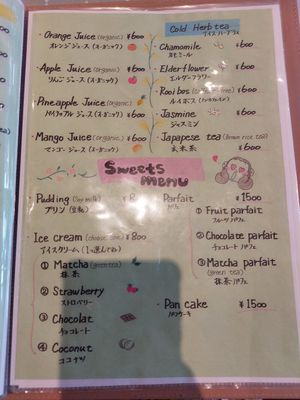 Cold Herb tea
アイスハーブティ
・Orange Juice (organic) ¥600
オレンジジュース (オーガニック)
・Apple Juice (organic) ¥600
りんごジュース (オーガニック)
・Pineapple Juice (organic) ¥600
パイナップルジュース (オーガニック)
・Mango Juice (organic) ¥600
マンゴージュース (オーガニック)
・Chamomile ¥600
カモミール
・Elderflower ¥600
エルダーフラワー
・Rooibos ¥600
ルイボス
・Jasmine ¥600
ジャスミン
・Japapese tea (Brown rice tea) ¥600
玄米茶
Sweets
menu
・Pudding (Soy milk)
プリン (豆乳)
・Ice cream ¥800
アイスクリーム (1つ選んでね)
① Matcha (green tea)
抹茶
② Strawberry
ストロベリー
③ Chocolat
チョコレート
④ Coconut
ココナツ
Parfait ¥1500
パフェ
① Fruit parfait
フルーツパフェ
② Chocolate parfait
チョコレートパフェ
③ Matcha parfait
(green tea)
抹茶パフェ
・Pan cake ¥1500
パンケーキ